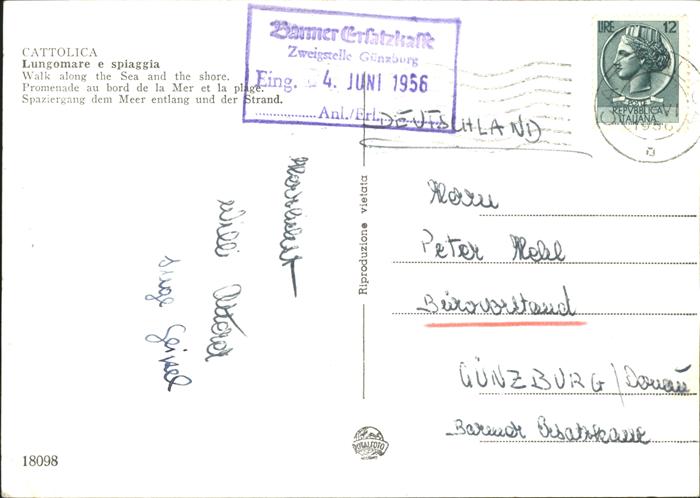 CATTOLICA
Lungomare e spiaggia
Walk along the Sea and the shore.
Promenade au bord de la Mer et la plage.
Spaziergang dem Meer entlang und der Strand.
Barmer Ersatzkasse
Zweigstelle Günzburg
Eing. 4. JUNI 1956
Anl./Erl.
LIRE 12
POSTE
REPVBBLICA
ITALIANA
1956
DEUTSCHLAND
Herrn
Peter
Bürovorstand
GÜNZBURG/Donau
Barmer Ersatzkasse
Willi
Riproduzione vietata
18098